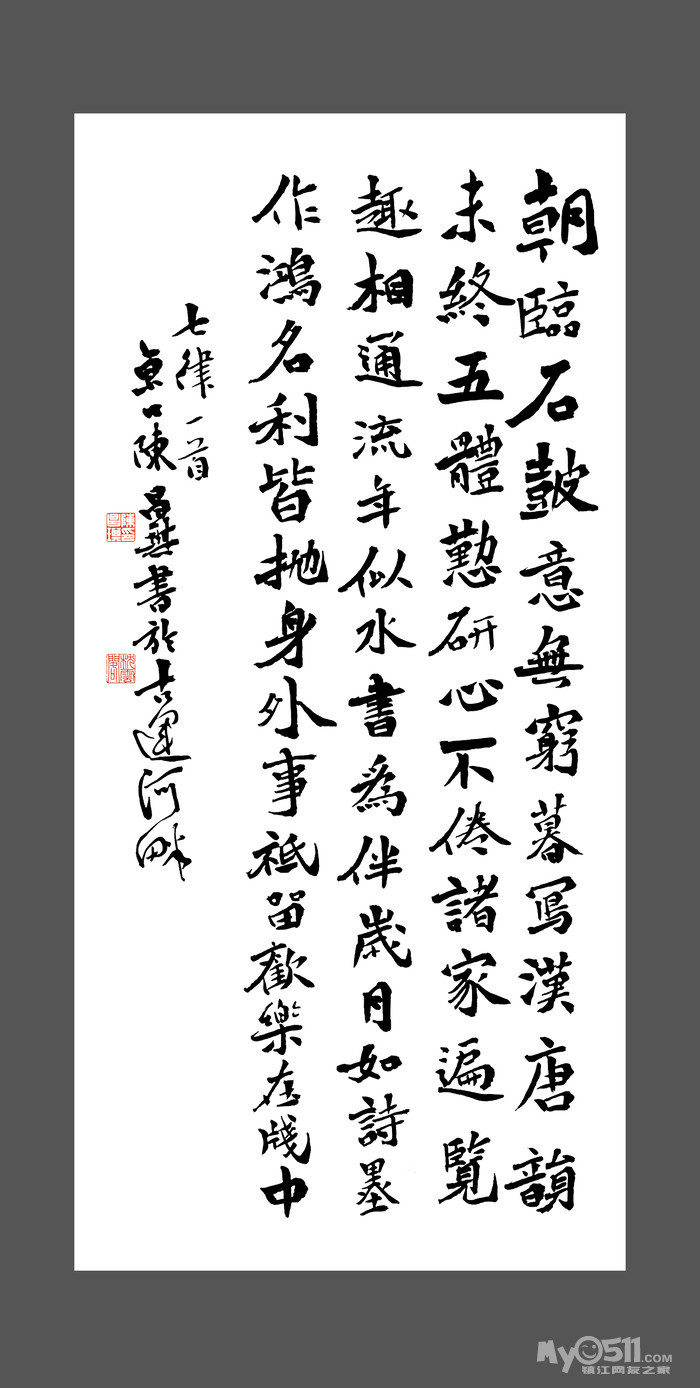 朝臨石鼓意無窮暮寫漢唐韻
未終五體懃研心不倦諸家遍覽
趣相通流年似水書為伴歲月如詩墨
作鴻名利皆抛身外事祗留歡樂在牋中
七律一首
陳昌 書於古運河畔
My0511.COM
镇江网友之家